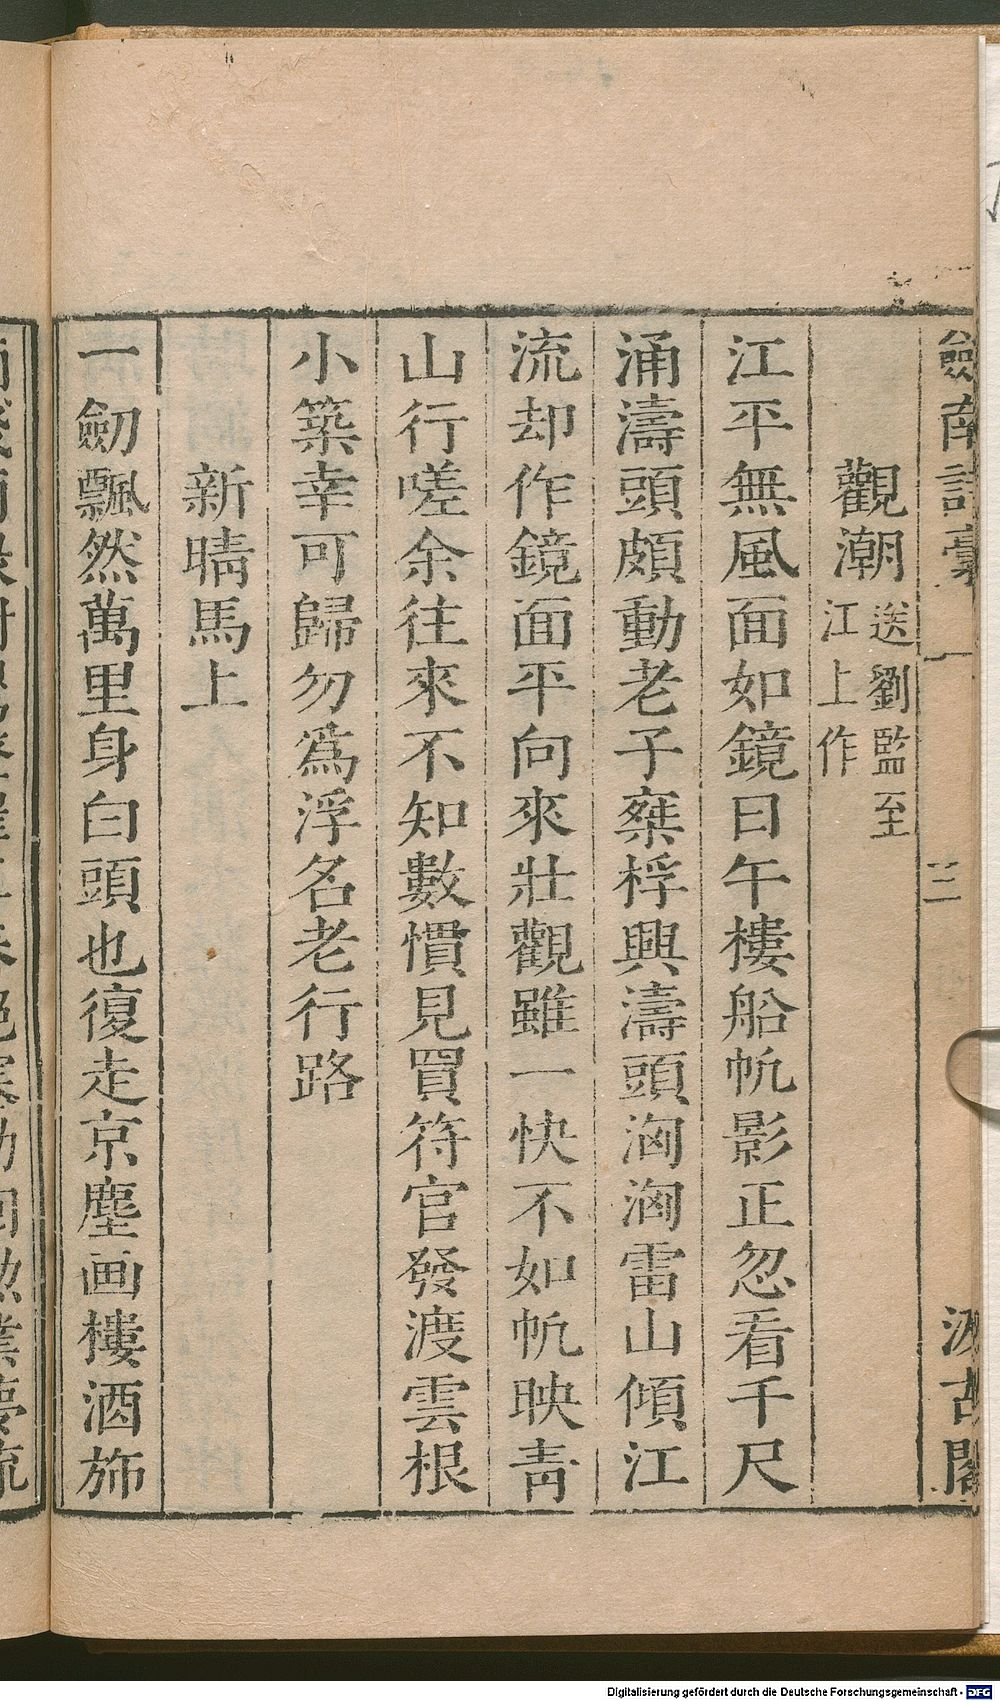 劍南詩稾 一 三 汲古閣
觀潮 送劉監至
江上作
江平無風面如鏡日午樓船帆影正忽看千尺
涌濤頭頗動老子椉桴興濤頭洶洶雷山傾江
流却作鏡面平向來壯觀雖一快不如帆映青
山行嗟余往來不知數慣見買符官發渡雲根
小築幸可歸勿爲浮名老行路
新晴馬上
一劒飄然萬里身白頭也復走京塵画樓酒斾
Digitalisierung gefördert durch die Deutsche Forschungsgemeinschaft - DFG